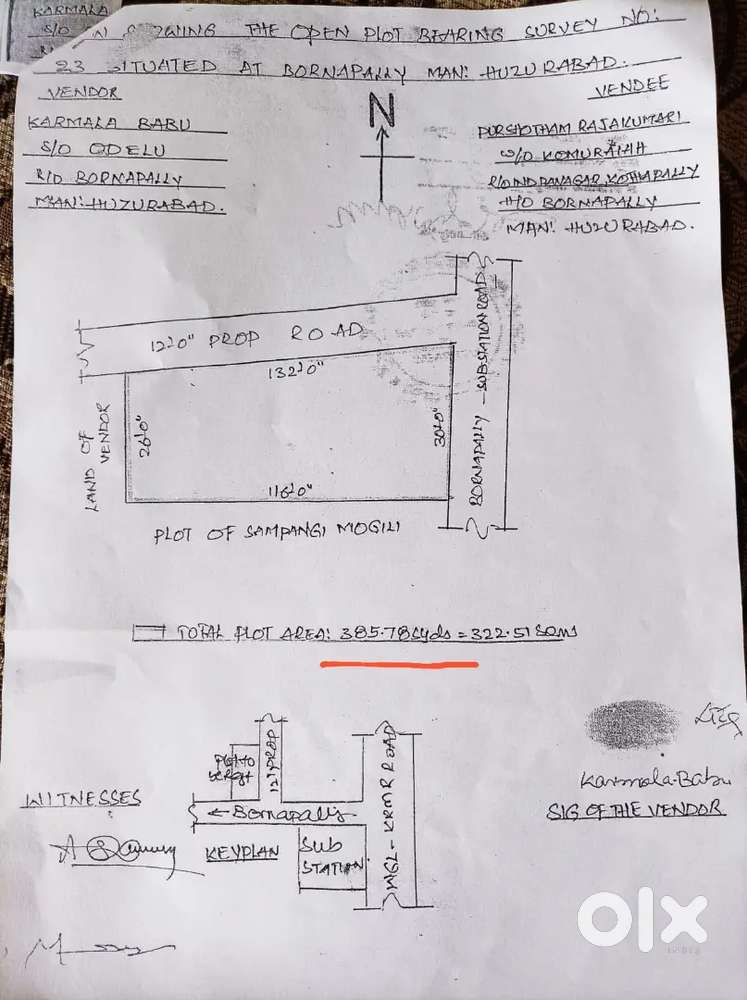 KARMALA
S/O
THE OPEN PLOT BEARING SURVEY NO:
23 SITUATED AT BORNAPALLY MAN: HUZURABAD.
VENDOR
KARMALA BABU
S/O ODELU
R/O BORNAPALLY
MAN: HUZURABAD.
N
VENDEE
PURSHOTHAM RAJAKUMARI
W/O KOMURAIAH
R/O INDRANAGAR, KOTHAPALLY
H/O BORNAPALLY
MAN: HUZURABAD.
12'-0" PROP ROAD
132'-0"
LAND OF VENDOR
26'-0"
30'-0"
BORNAPALLY - SUBSTATION ROAD
116'-0"
PLOT OF SAMPANGI MOGILI
TOTAL PLOT AREA: 385.78 Syds = 322.51 SQMS
Plot to be Regt
12' PROP
← Bornapally
WGL - KRMR ROAD
SUB STATION
KEYPLAN
WITNESSES
Karmala.Babu
SIG OF THE VENDOR
olx